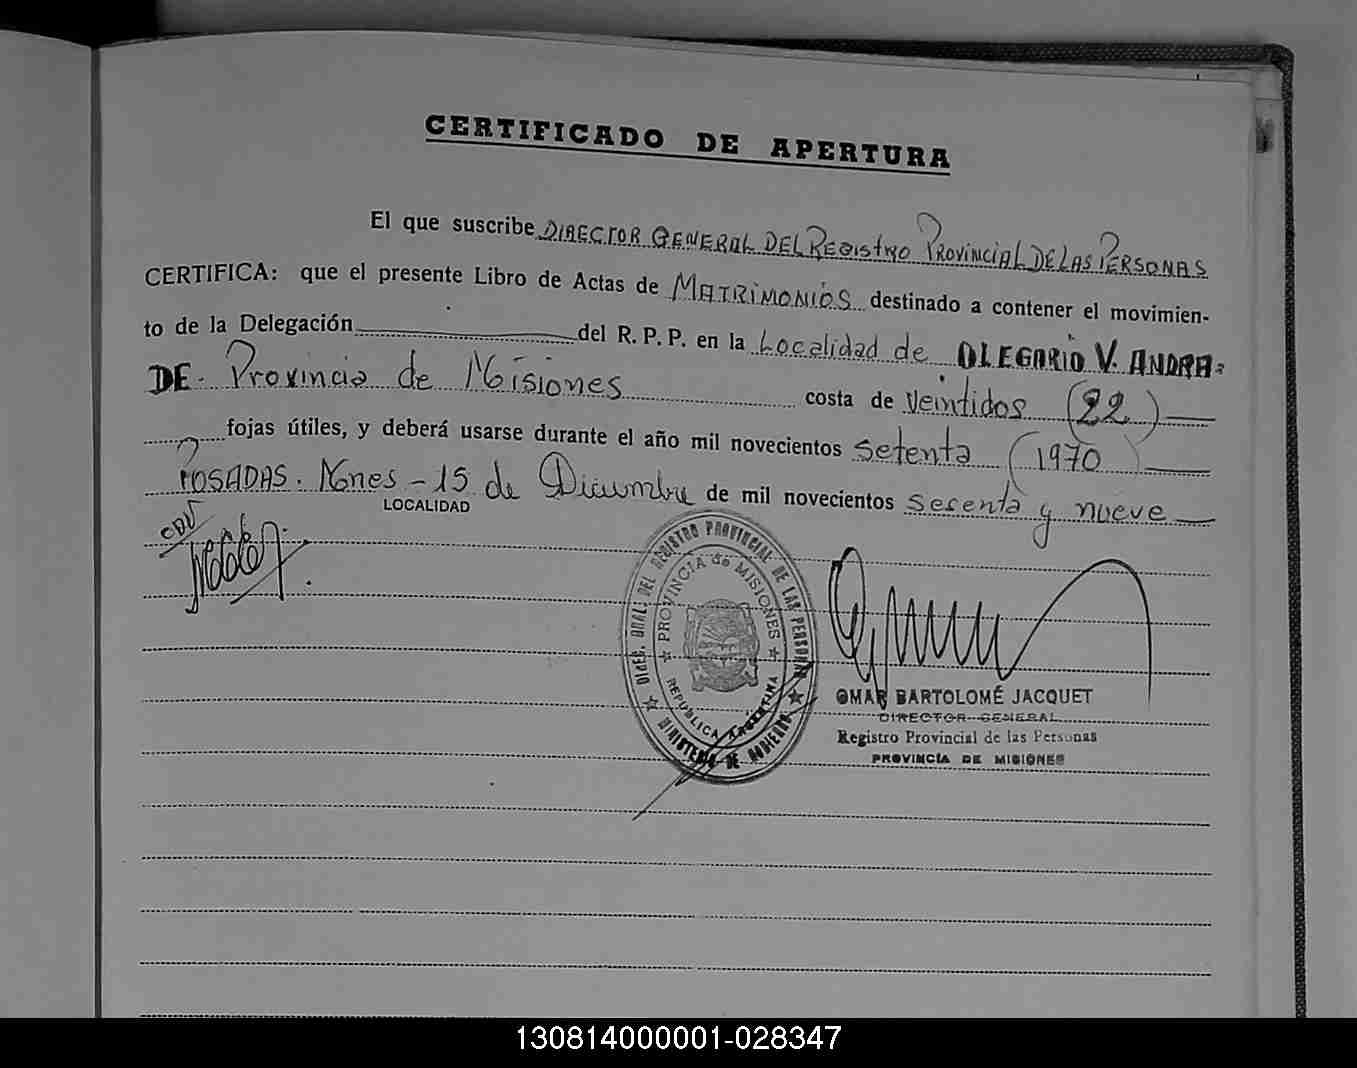 CERTIFICADO DE APERTURA
El que suscribe DIRECTOR GENERAL DEL REGISTRO PROVINCIAL DE LAS PERSONAS
CERTIFICA: que el presente Libro de Actas de MATRIMONIOS destinado a contener el movimien-
to de la Delegación del R. P. P. en la Localidad de OLEGARIO V. ANDRA-
DE. Provincia de Misiones costa de veintidos (22)
fojas útiles, y deberá usarse durante el año mil novecientos setenta (1970)
POSADAS. Mnes - 15 de Diciembre de mil novecientos sesenta y nueve
LOCALIDAD
DIREC. GRAL. DEL REGISTRO PROVINCIAL DE LAS PERSONAS
PROVINCIA de MISIONES
REPUBLICA ARGENTINA
MINISTERIO DE GOBIERNO
OMAR BARTOLOMÉ JACQUET
DIRECTOR GENERAL
Registro Provincial de las Personas
PROVINCIA DE MISIONES
130814000001-028347